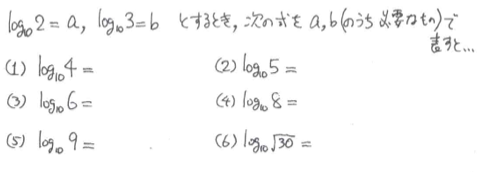 log₁₀2 = a, log₁₀3 = b とするとき, 次の式を a, b(のうち必要なもの)で
書すと...
(1) log₁₀4 = (2) log₁₀5 =
(3) log₁₀6 = (4) log₁₀8 =
(5) log₁₀9 = (6) log₁₀√30 =